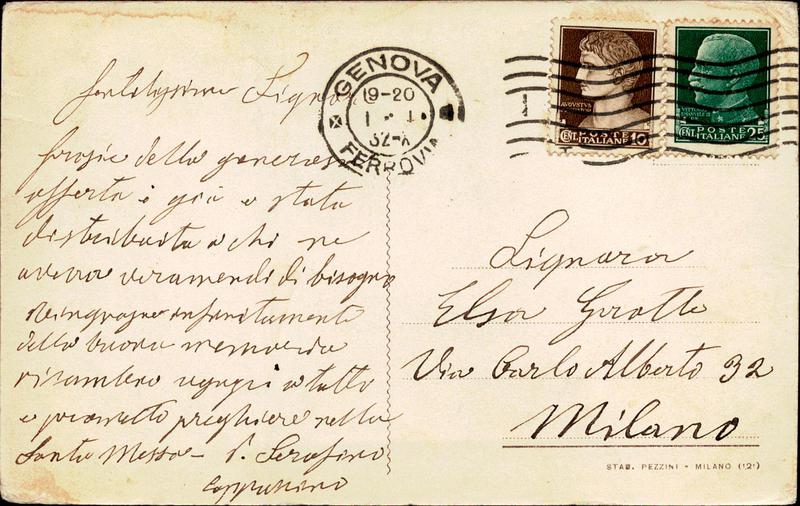 Gentilissima Signora
Grazie della generosa
offerta è già stata
distribuita a chi ne
aveva veramente di bisogno
Ringrazio infinitamente
della buona memoria
ricambio a tutto
e prometto preghiere nella
Santa Messa – P. Serafino
Cappuccino
GENOVA
19-20
32-X
FERROVIA
AVGVSTVS
CENT. POSTE ITALIANE 10
CENT. POSTE ITALIANE 25
Signora
Elsa Grotto
Via Carlo Alberto 32
Milano
STAB. PEZZINI - MILANO (121)